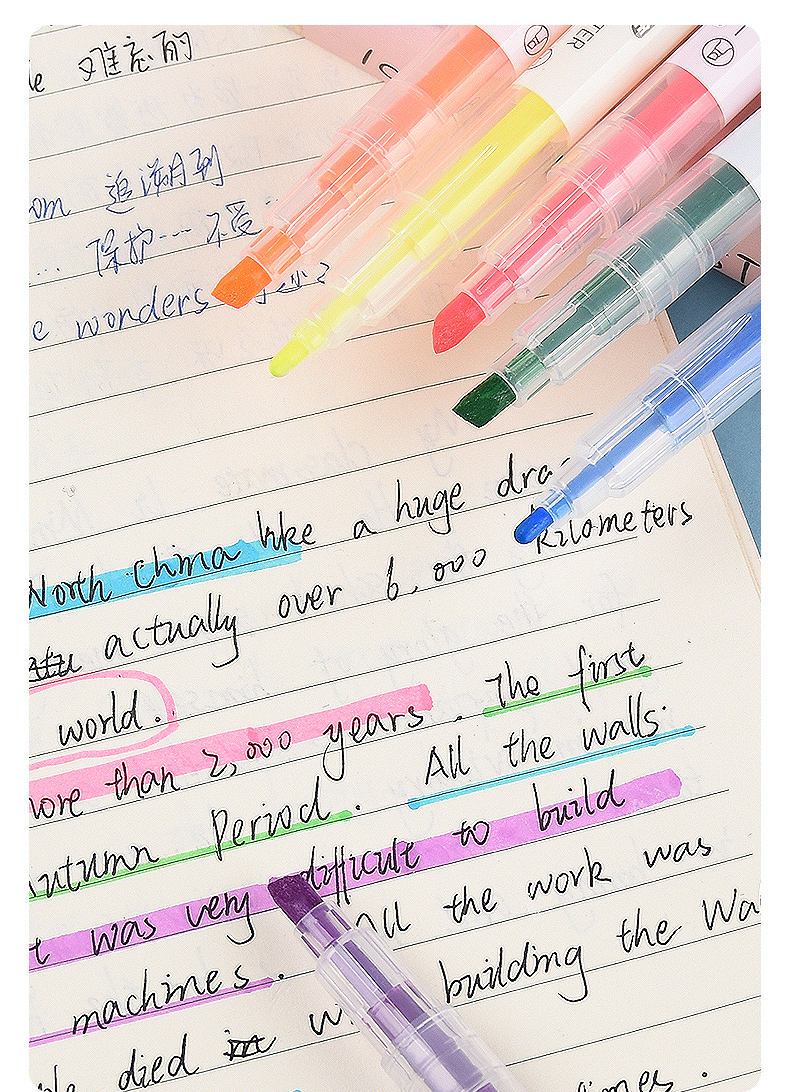 难忘的
追溯到
保护… 不受…
wonders
North China like a huge
actually over 6,000 kilometers
world.
more than 2,000 years. The first
Autumn Period. All the walls
t was very difficult to build
machines. All the work was
died building the Wa